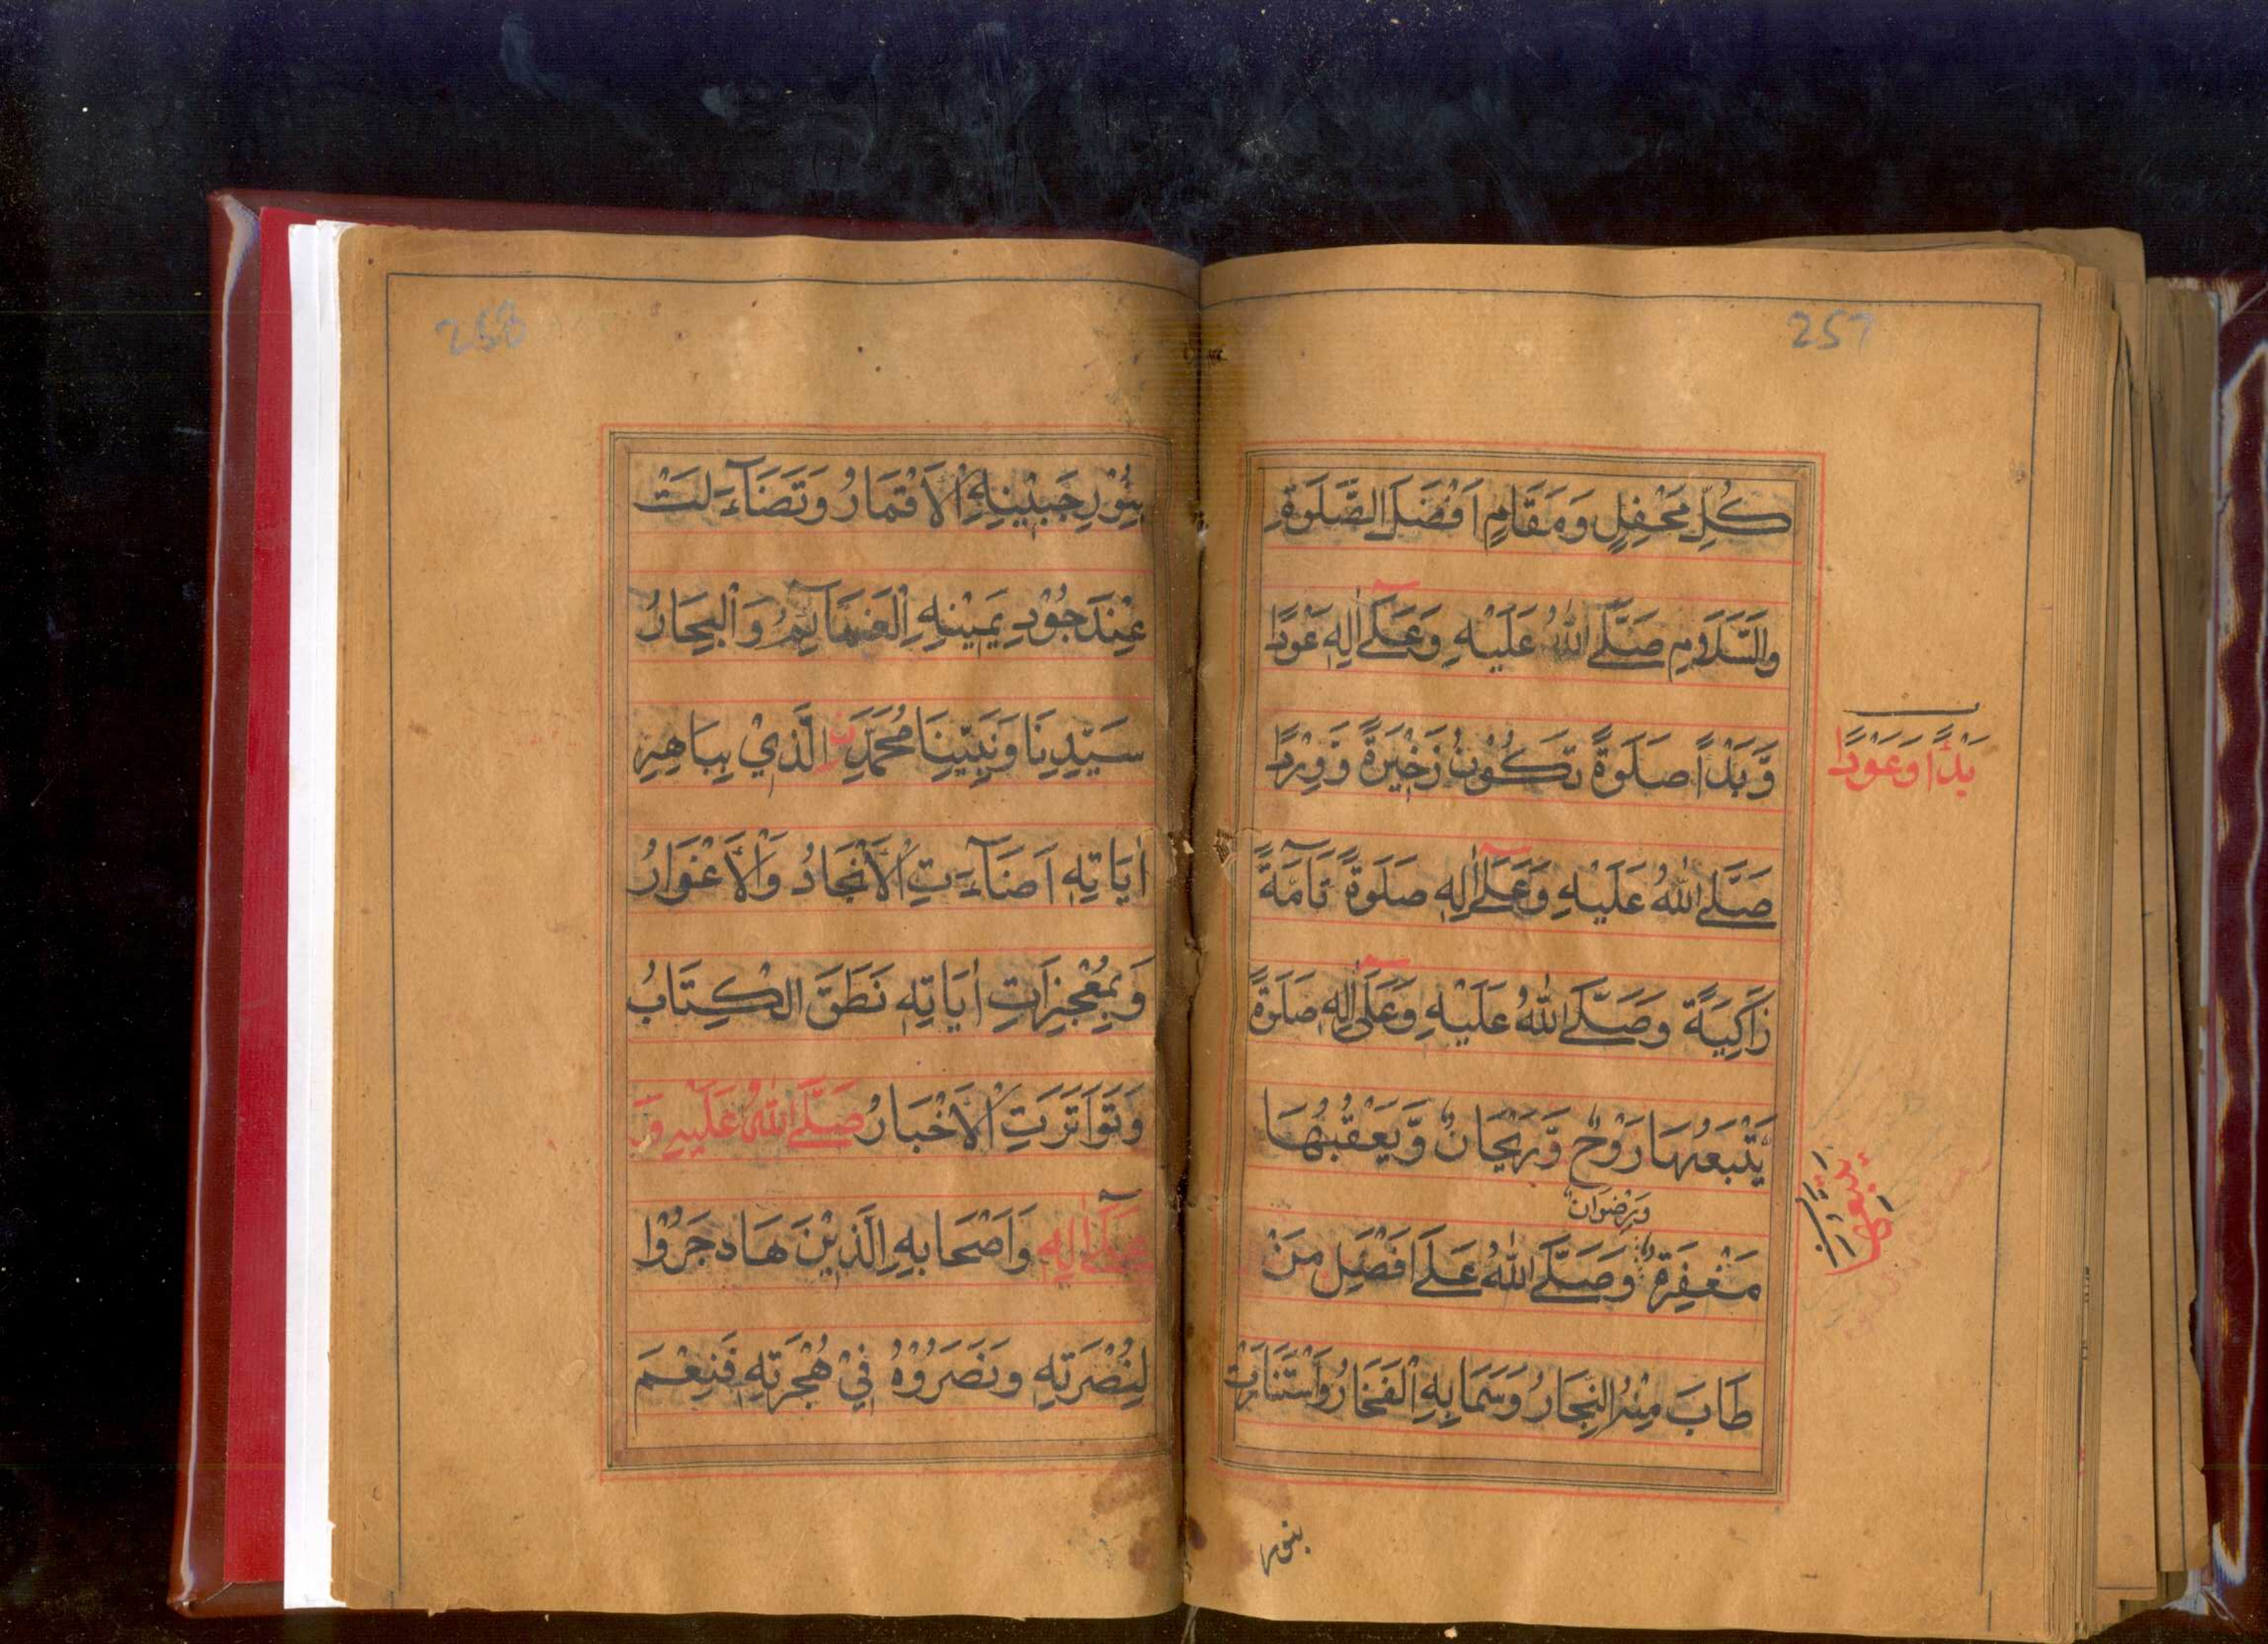 257
كُلِّ مَحْفِلٍ وَمَقَامٍ اَفْضَلَ الصَّلَوةِ
وَالسَّلَامِ صَلَّى اللهُ عَلَيْهِ وَعَلَى اٰلِهٖ عَوْدًا
وَّبَدْاً صَلَوةً تَكُوْنُ ذَخِيْرَةً وَّوِرْدًا
بَدْاً وَعَوْدًا
صَلَّى اللهُ عَلَيْهِ وَعَلَى اٰلِهٖ صَلَوةً تَآمَّةً
زَاكِيَةً وَصَلَّى اللهُ عَلَيْهِ وَعَلَى اٰلِهٖ صَلَوةً
يَتْبَعُهَا رَوْحٌ وَّرَيْحَانٌ وَّيَعْقُبُهَا
وَرِضْوَانٌ
مَغْفِرَةٌ وَصَلَّى اللهُ عَلَى اَفْضَلِ مَنْ
طَابَ مِنْهُ النِّجَارُ وَسَمَا بِهِ الْفَخَارُ وَاسْتَنَارَتْ
بنور
258
بِنُوْرِ جَبِيْنِهِ الْاَقْمَارُ وَتَضَآءَلَتْ
عِنْدَ جُوْدِ يَمِيْنِهِ الْغَمَآئِمُ وَالْبِحَارُ
سَيِّدِنَا وَنَبِيِّنَا مُحَمَّدِنِ الَّذِيْ بِبَاهِرِ
اٰيَاتِهٖ اَضَآءَتِ الْاَنْجَادُ وَالْاَغْوَارُ
وَبِمُعْجِزَاتِ اٰيَاتِهٖ نَطَقَ الْكِتَابُ
وَتَوَاتَرَتِ الْاَخْبَارُ صَلَّى اللهُ عَلَيْهِ وَ
عَلَى اٰلِهٖ وَاَصْحَابِهِ الَّذِيْنَ هَاجَرُوْا
لِنُصْرَتِهٖ وَنَصَرُوْهُ فِيْ هِجْرَتِهٖ فَنِعْمَ